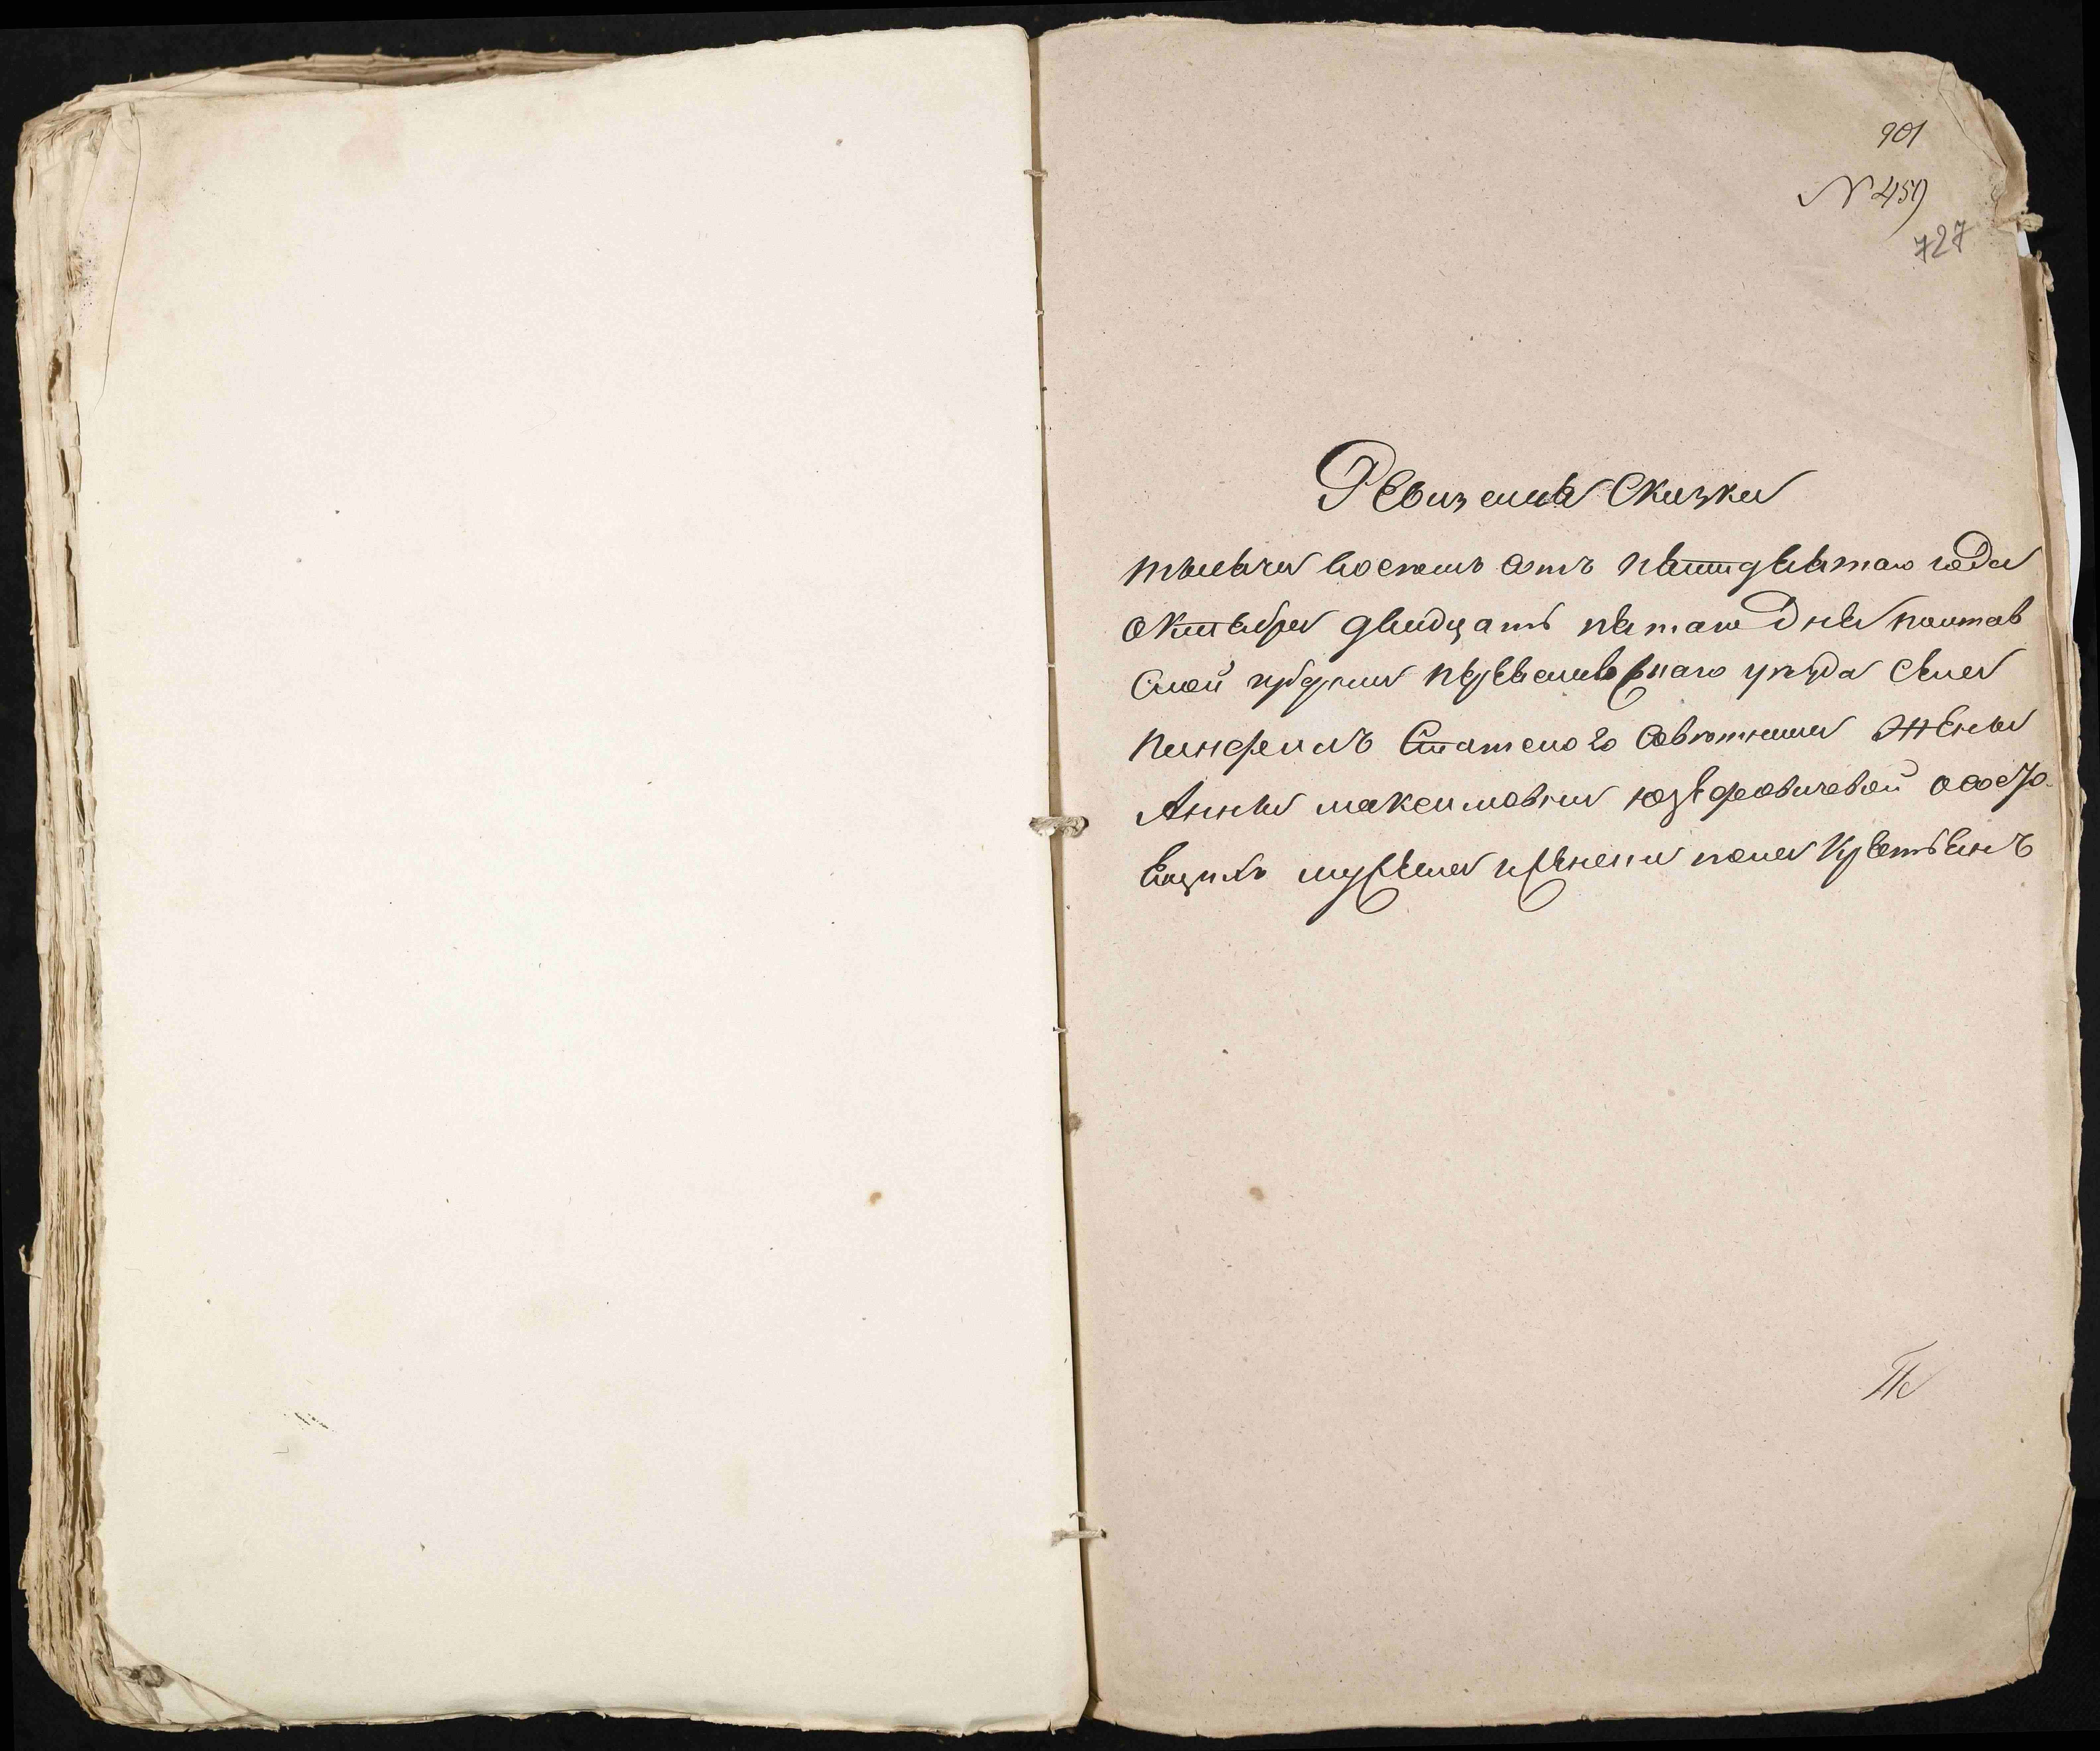 901
N 459
727
Ревизская Сказка
тысяча восемь сотъ пятидесятаго года
октября двадцать пятаго дня полтав
ской губернии переяславскаго уезда села
панфилъ Статского Советника Жены
Анны максимовны юзефовичевой осостоя
ащихъ мужеска и женска пола крестьянъ